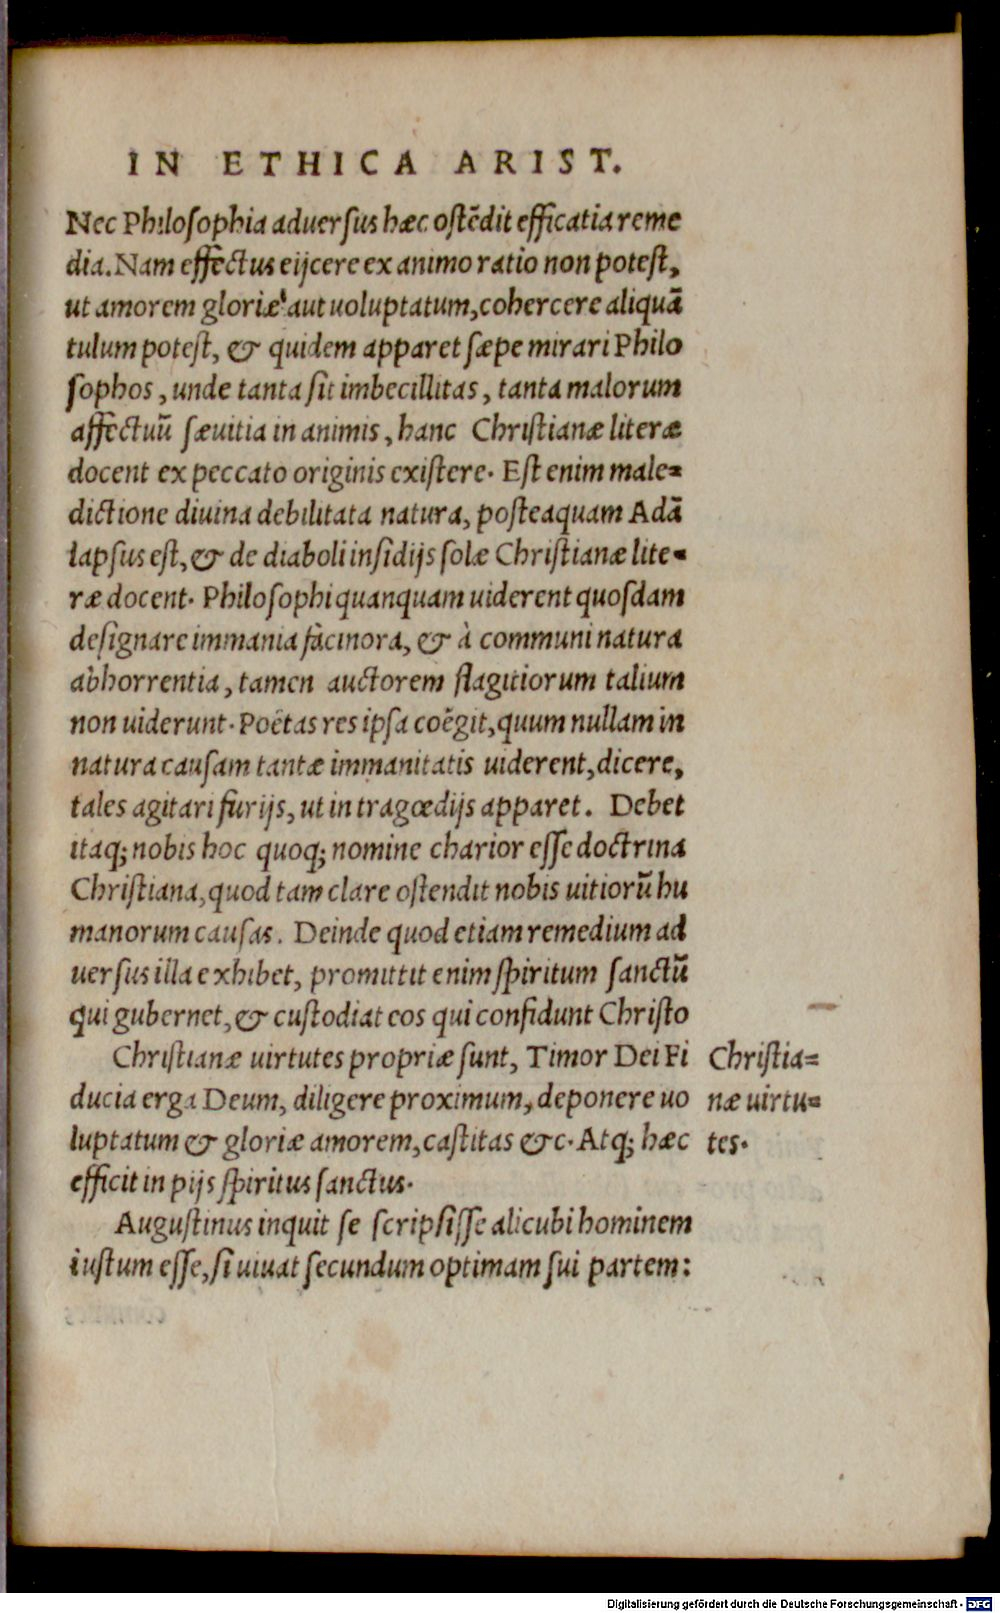 IN ETHICA ARIST.
Nec Philosophia aduersus hæc ostẽdit efficatia reme
dia. Nam effectus eijcere ex animo ratio non potest,
ut amorem gloriæ aut uoluptatum, cohercere aliquã
tulum potest, & quidem apparet sæpe mirari Philo
sophos, unde tanta sit imbecillitas, tanta malorum
affectuũ sæuitia in animis, hanc Christianæ literæ
docent ex peccato originis existere. Est enim male=
dictione diuina debilitata natura, posteaquam Adã
lapsus est, & de diaboli insidijs solæ Christianæ lite=
ræ docent. Philosophi quanquam uiderent quosdam
designare immania facinora, & à communi natura
abhorrentia, tamen auctorem flagitiorum talium
non uiderunt. Poëtas res ipsa coëgit, quum nullam in
natura causam tantæ immanitatis uiderent, dicere,
tales agitari furijs, ut in tragœdijs apparet. Debet
itaq; nobis hoc quoq; nomine charior esse doctrina
Christiana, quod tam clare ostendit nobis uitiorũ hu
manorum causas. Deinde quod etiam remedium ad
uersus illa exhibet, promittit enim spiritum sanctũ
qui gubernet, & custodiat eos qui confidunt Christo
Christianæ uirtutes propriæ sunt, Timor Dei Fi
ducia erga Deum, diligere proximum, deponere uo
luptatum & gloriæ amorem, castitas &c. Atq; hæc
efficit in pijs spiritus sanctus.
Christia=
næ uirtu=
tes.
Augustinus inquit se scripsisse alicubi hominem
iustum esse, si uiuat secundum optimam sui partem:
Digitalisierung gefördert durch die Deutsche Forschungsgemeinschaft - DFG